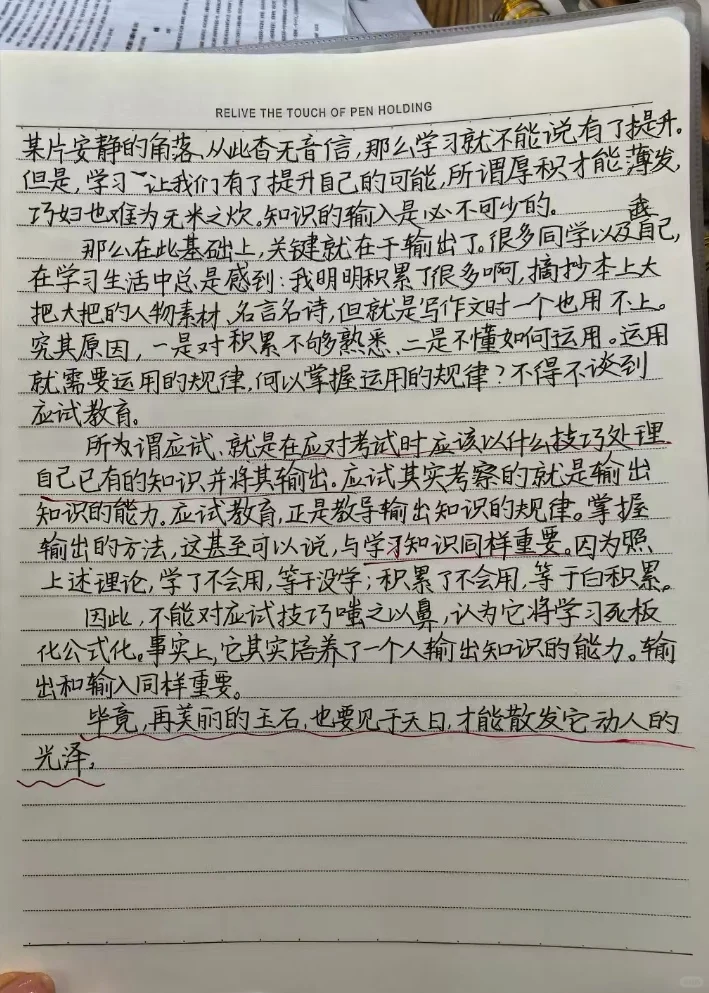 RELIVE THE TOUCH OF PEN HOLDING
某片安静的角落、从此杳无音信，那么学习就不能说有了提升。
但是，学习让我们有了提升自己的可能，所谓厚积才能薄发，
巧妇也难为无米之炊。知识的输入是必不可少的。
我
那么在此基础上，关键就在于输出了。很多同学以及自己，
在学习生活中总是感到：我明明积累了很多啊，摘抄本上大
把大把的人物素材、名言名诗，但就是写作文时一个也用不上。
究其原因，一是对积累不够熟悉、二是不懂如何运用。运用
就需要运用的规律，何以掌握运用的规律？不得不谈到
应试教育。
所为谓应试、就是在应对考试时应该以什么技巧处理
自己已有的知识并将其输出。应试其实考察的就是输出
知识的能力。应试教育，正是教导输出知识的规律。掌握
输出的方法，这甚至可以说，与学习知识同样重要。因为照
上述理论，学了不会用，等于没学；积累了不会用，等于白积累。
因此，不能对应试技巧嗤之以鼻，认为它将学习死板
化公式化。事实上，它其实培养了一个人输出知识的能力。输
出和输入同样重要。
毕竟，再美丽的玉石，也要见于天日，才能散发它动人的
光泽。